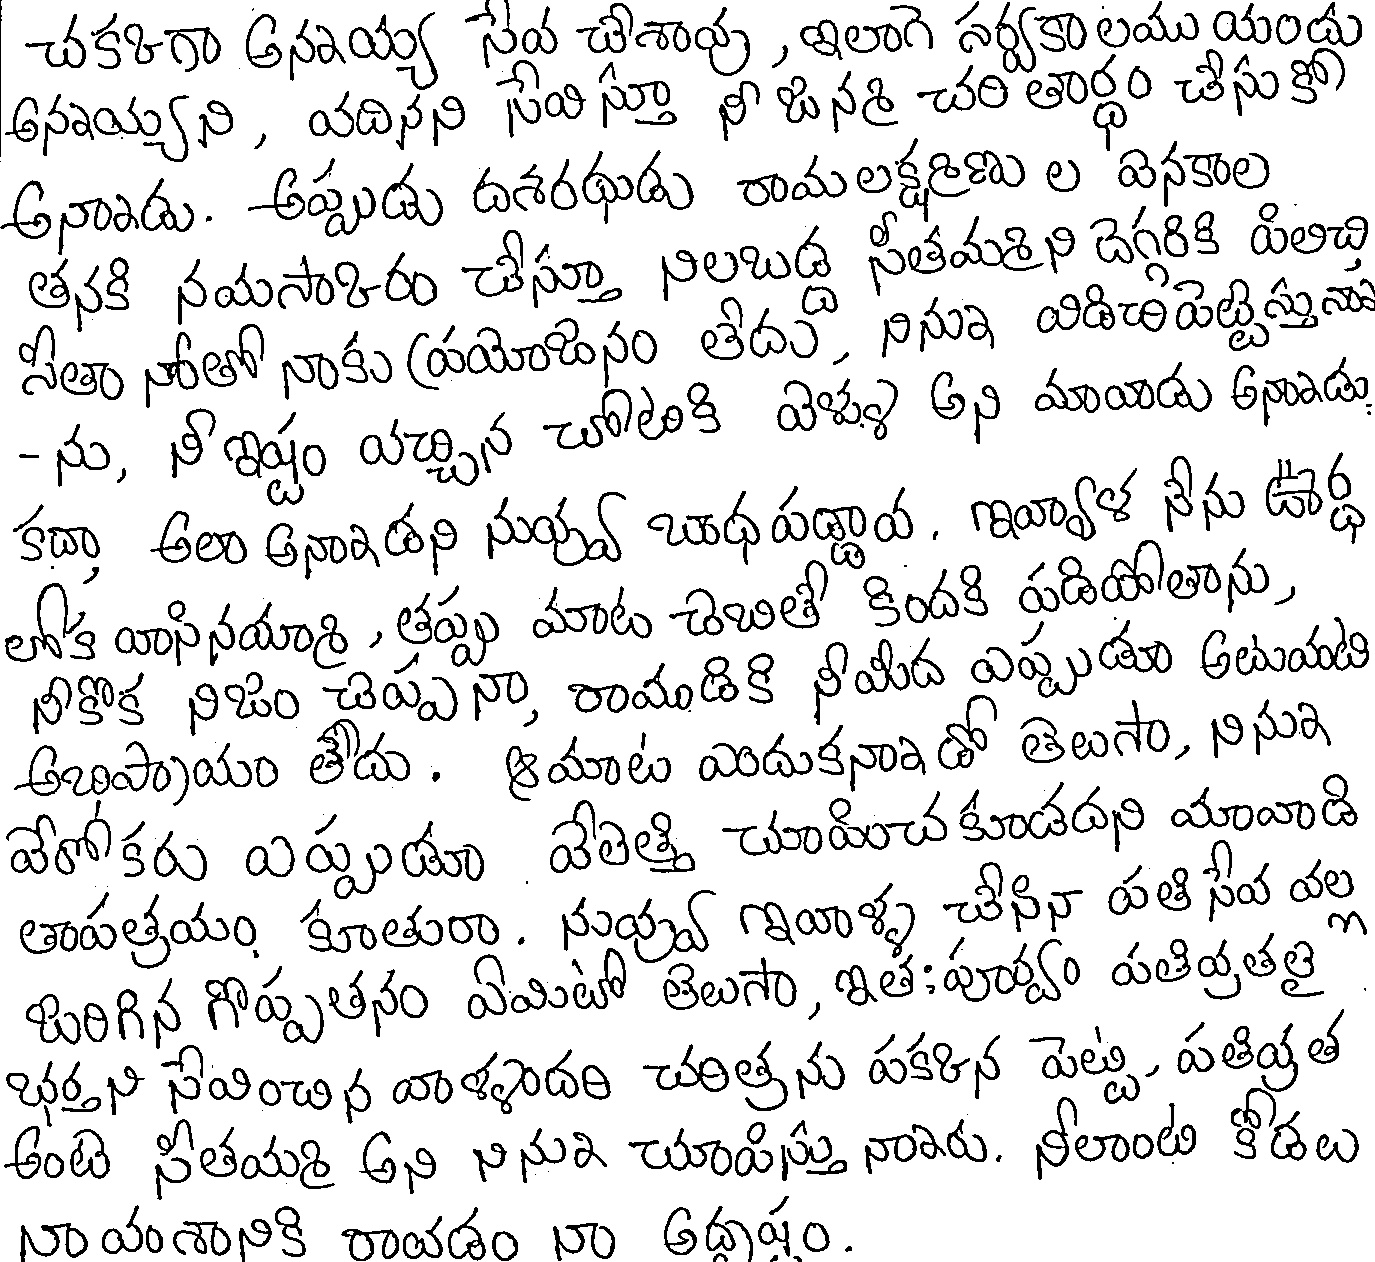 చకఠగా అన్నయ్య సేవ చేశావు, ఇలాగె సర్వకాలము యందు
అన్నయ్యని, వదినని సేవిస్తూ నీ జన్మ చరితార్థం చేసుకో
అన్నాడు. అప్పుడు దశరథుడు రామలక్ష్మణు ల వెనకాల
తనకి నమస్కారం చేస్తూ నిలబడ్డ సీతమ్మని దెగ్గరికి పిలిచి
సీతా నీతో నాకు ప్రయోజనం లేదు, నిన్ను విడిచిపెట్టేస్తున్నా
-ను, నీ ఇష్టం వచ్చిన చోటుకి వెళ్ళు అని మావాడు అన్నాడు.
కదా, అలా అన్నాడని నువ్వు బాధ పడ్డావ. ఇవ్వాళ నేను ఊర్ధ
లోక వాసినయ్యా, తప్పు మాట చెబితే కిందకి పడిపోతాను,
నీకొక నిజం చెప్పనా, రాముడికి నీమీద ఎప్పుడూ అటువంటి
అభిప్రాయం లేదు. ఆమాట ఎందుకన్నాడో తెలుసా, నిన్ను
వేరోకరు ఎప్పుడూ వేలెత్తి చూపించకూడదని మావాడి
తాపత్రయం కూతురా. నువ్వు ఇవాళ్ళ చేసిన పతి సేవ వల్ల
జరిగిన గొప్పతనం ఏమిటో తెలుసా, ఇత:పూర్వం పతివ్రతలై
భర్తని సేవించిన వాళ్ళందరి చరిత్రను పక్కన పెట్టి, పతివ్రత
అంటె సీతయమ్మ అని నిన్ను చూపిస్తున్నారు. నీలాంటి కోడలు
నా వంశానికి రావడం నా అదృష్టం.